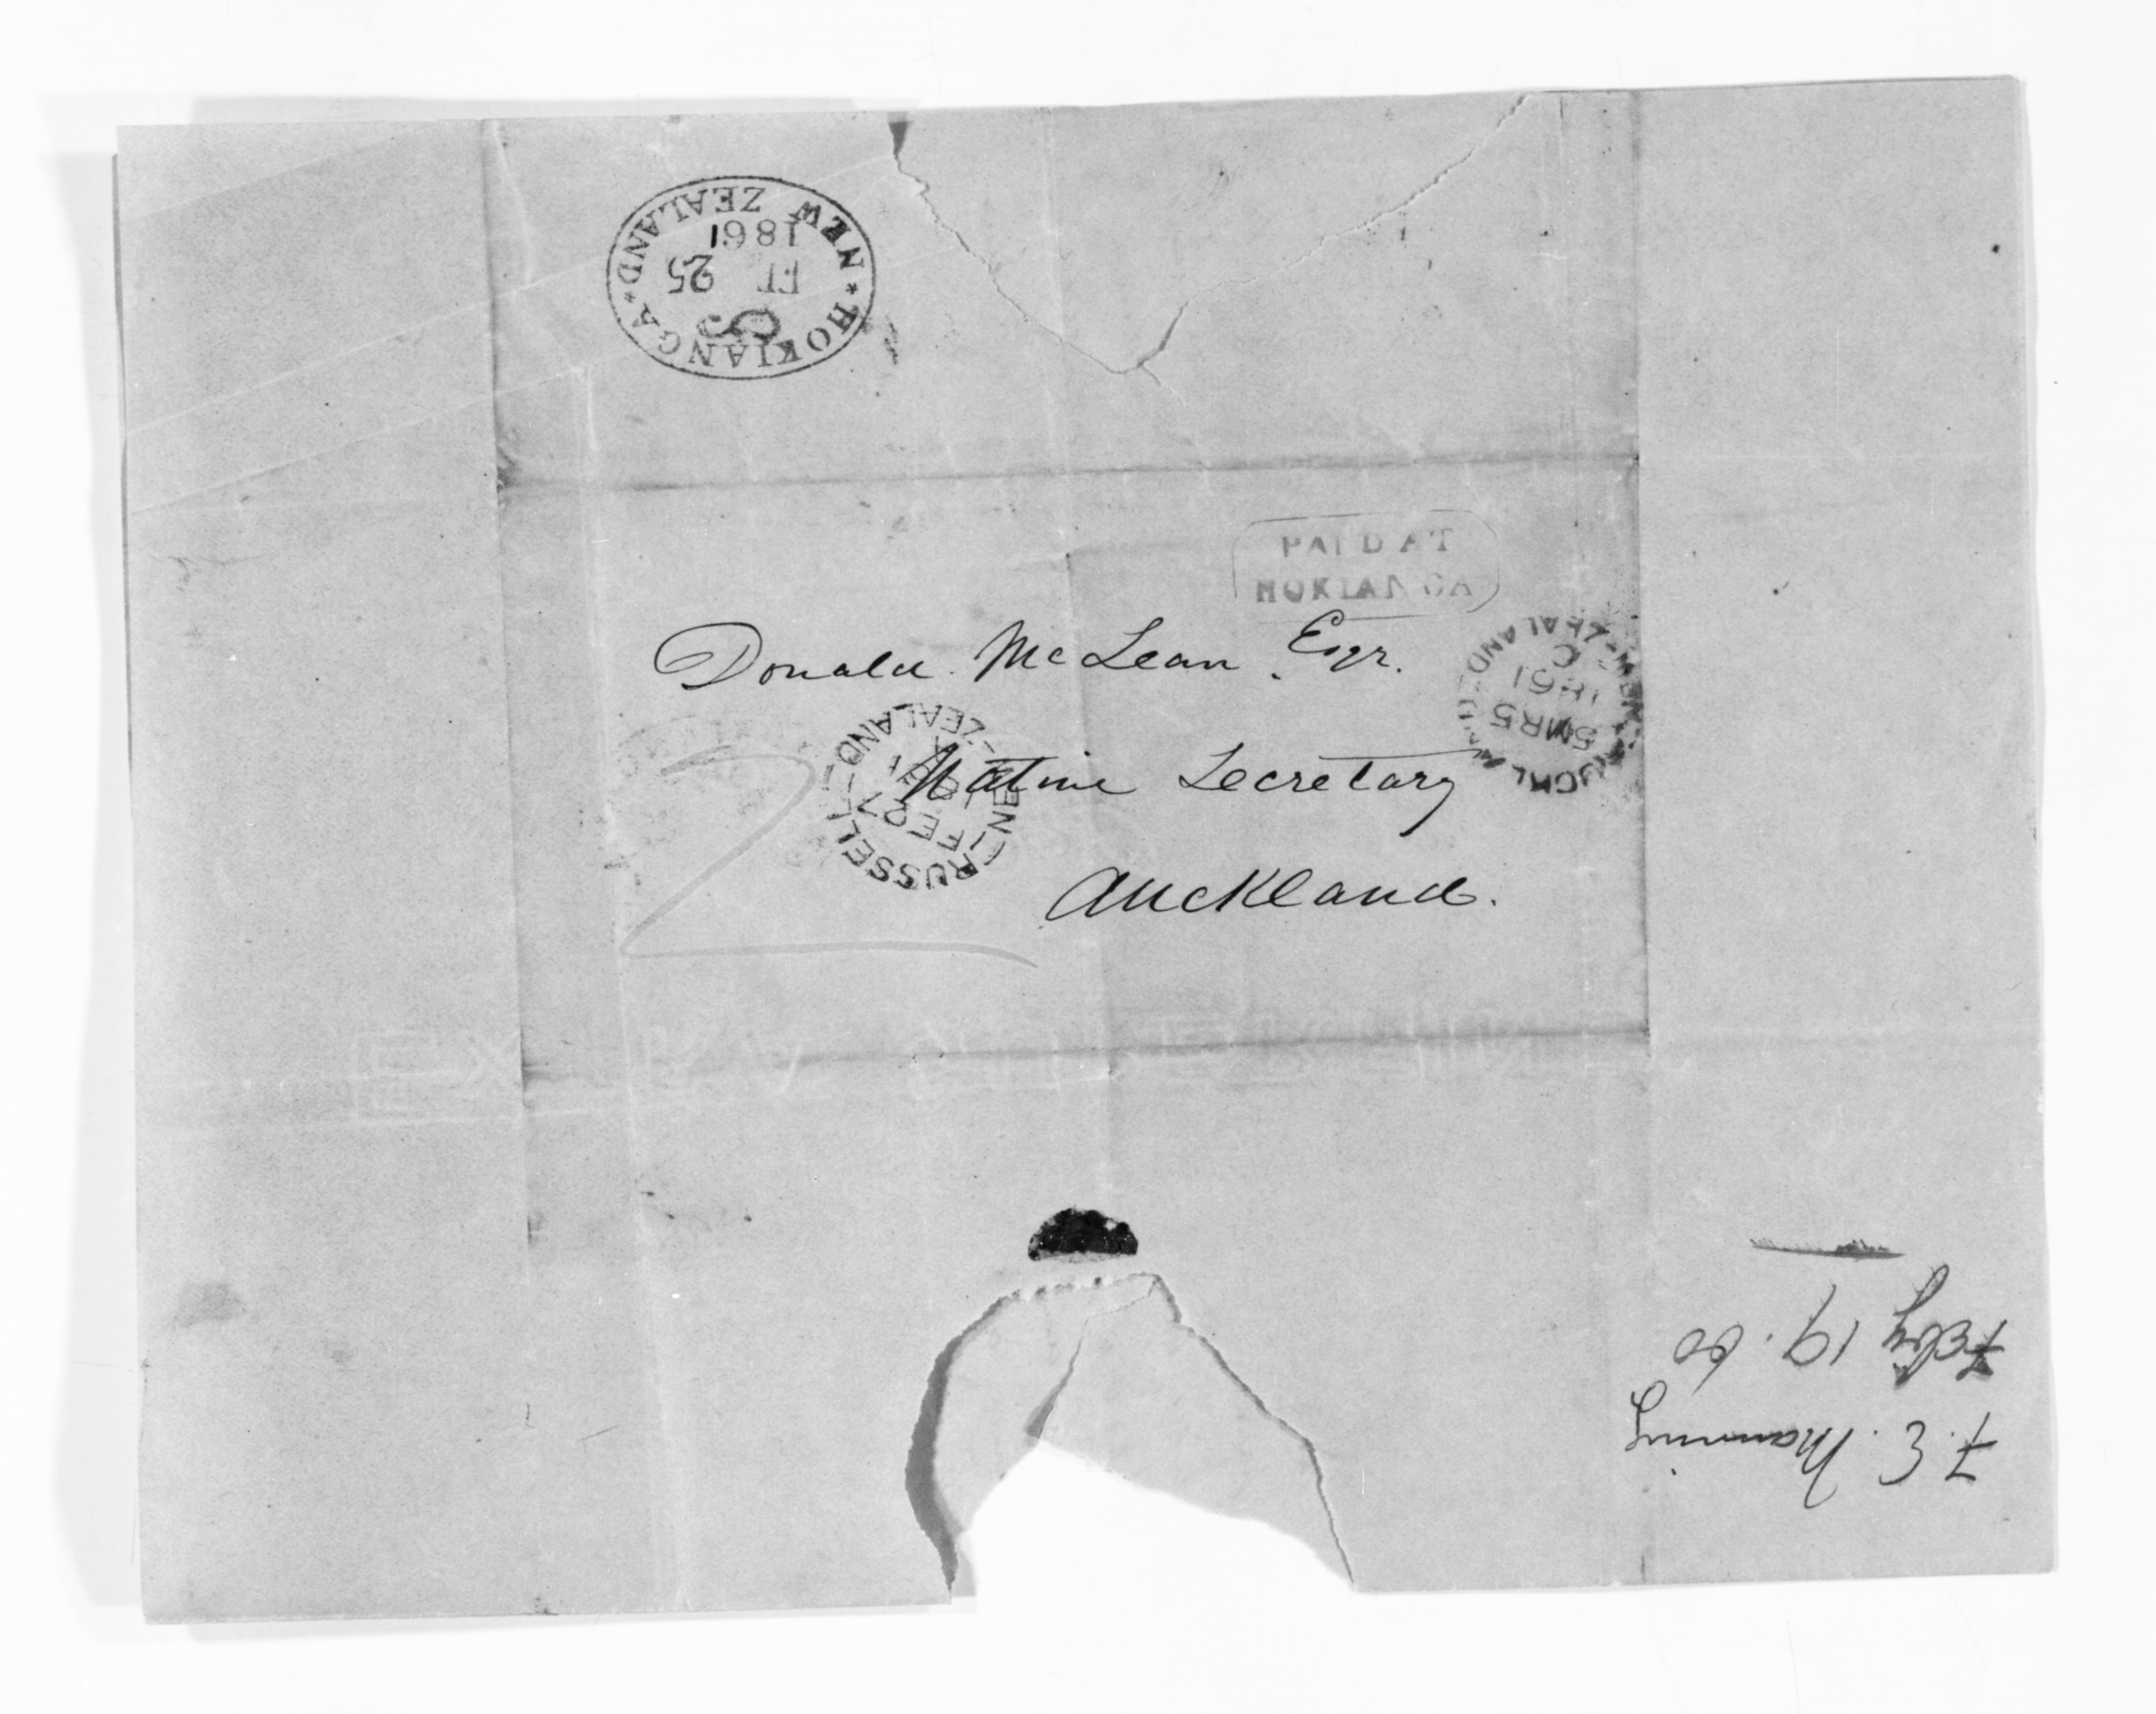 * HOKIANGA *
FE 25
1861
NEW ZEALAND
PAID AT
HOKIANGA
Donald McLean. Esqr.
Native Secretary
Auckland.
2
RUSSELL
FE 27
1861
NEW-ZEALAND
AUCKLAND
5 MR 5
1861
C
NEW-ZEALAND
F. E. Manning
Feby 19. 60